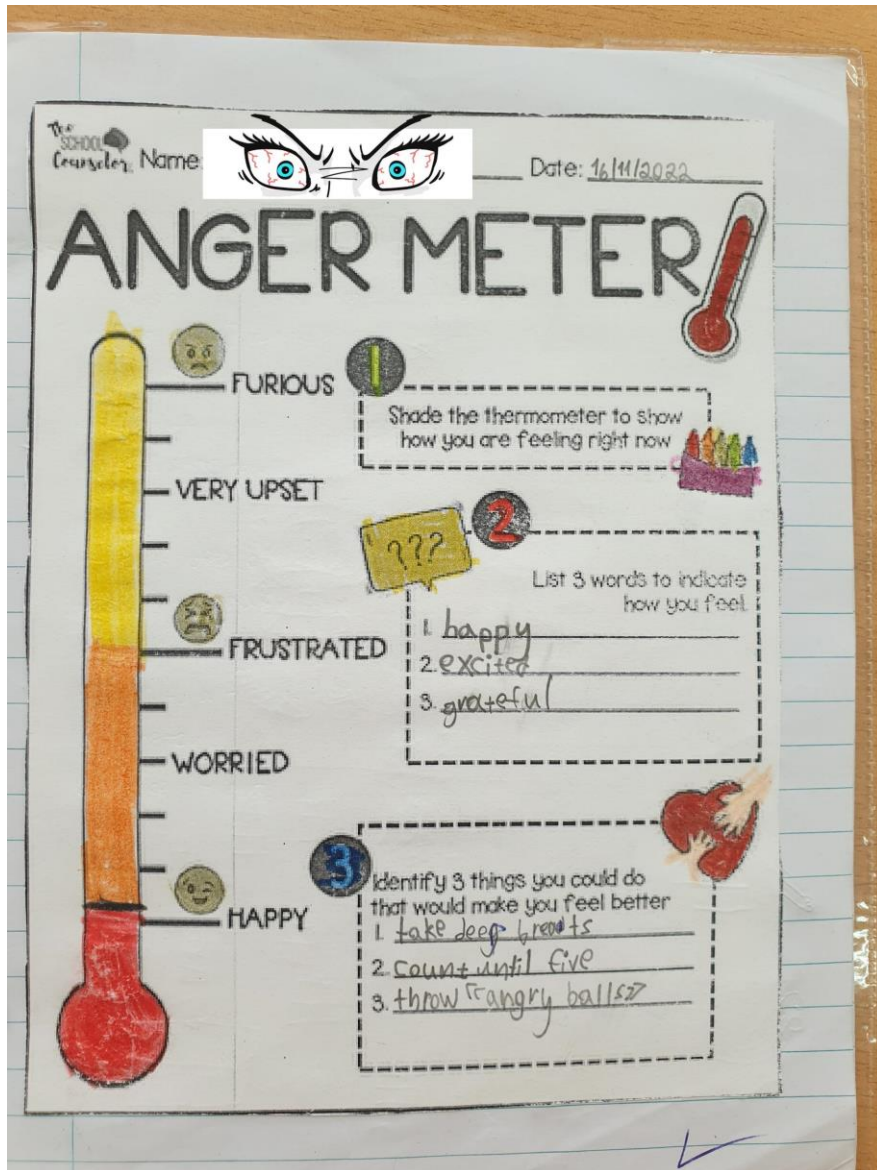 The
SCHOOL
Counselor.
Name:
Date: 16/11/2022
ANGER METER
FURIOUS
VERY UPSET
FRUSTRATED
WORRIED
HAPPY
1
Shade the thermometer to show
how you are feeling right now
???
2
List 3 words to indicate
how you feel.
1. happy
2. excited
3. grateful
3
Identify 3 things you could do
that would make you feel better
1. take deep breats
2. count until five
3. throw "angry balls"